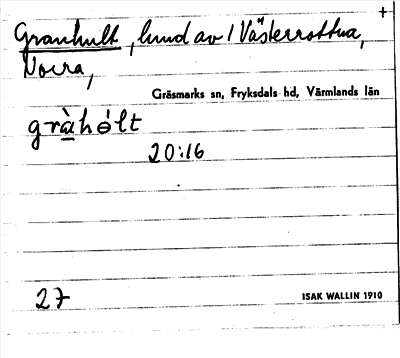 +
Granhult, lund av 1 Västerrottna,
Norra,
Gräsmarks sn, Fryksdals hd, Värmlands län
gràhólt
20:16
27
ISAK WALLIN 1910